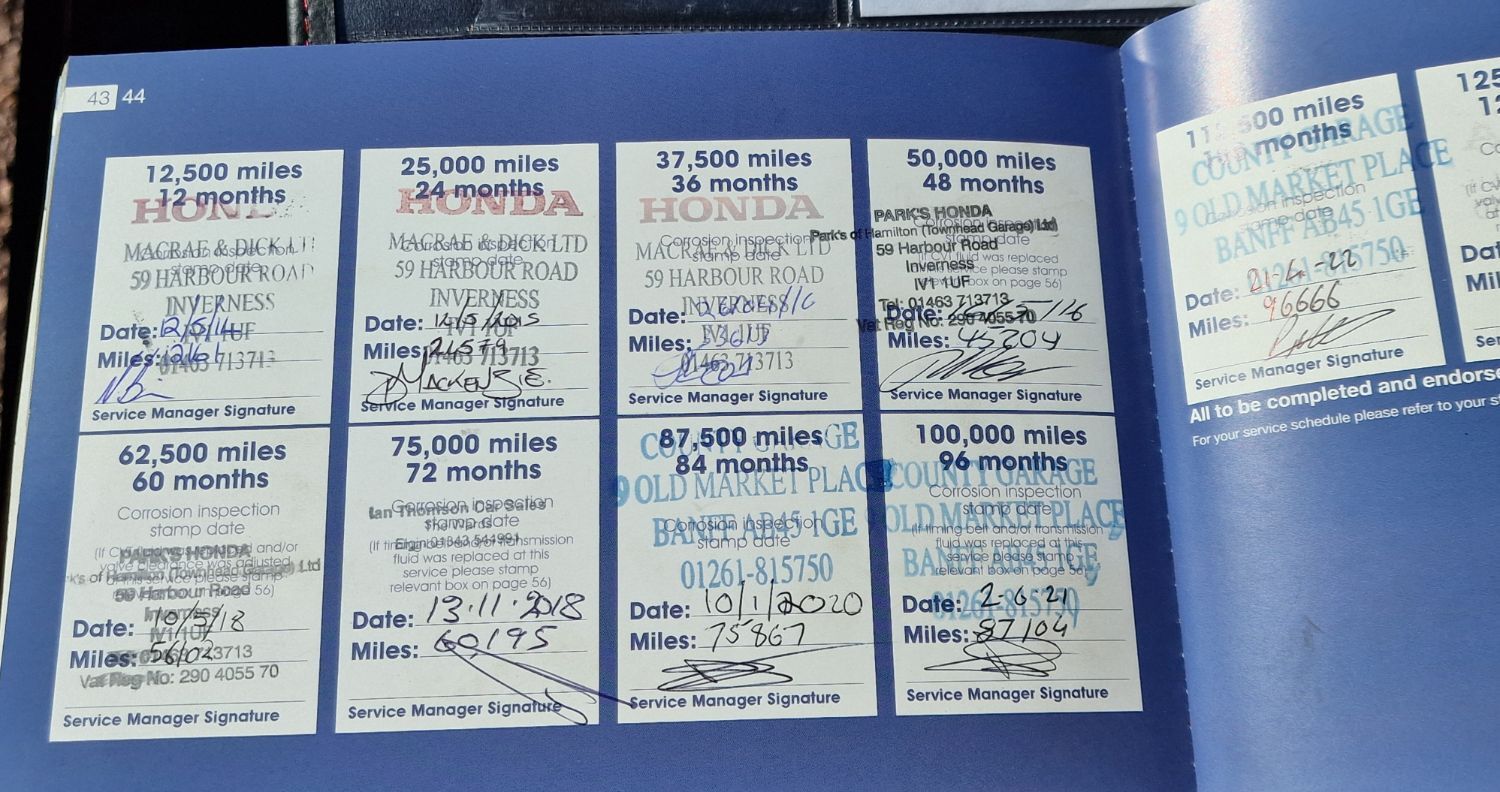 43 44
12,500 miles
12 months
HON
MACRAE & DICK LT
59 HARBOUR ROAD
INVERNESS
Date: 12/5/14
Miles:
01463 713713
Service Manager Signature
25,000 miles
24 months
HONDA
Corrosion inspection
stamp date
MACRAE & DICK LTD
59 HARBOUR ROAD
INVERNESS
IV1 1UF
Date: 14/5/2015
Miles: 21579
01463 713713
D MACKENZIE.
Service Manager Signature
37,500 miles
36 months
HONDA
Corrosion inspection
stamp date
MACRAE & DICK LTD
59 HARBOUR ROAD
INVERNESS
IV1 1UF
Date:
Miles:
01463 713713
Service Manager Signature
50,000 miles
48 months
PARK'S HONDA
Park's of Hamilton (Townhead Garage) Ltd
59 Harbour Road
Inverness
IV1 1UF
Tel: 01463 713713
Vat Reg No: 290 4055 70
Corrosion inspection
stamp date
fluid was replaced
please stamp
box on page 56)
Date:
Miles: 45204
Service Manager Signature
62,500 miles
60 months
Corrosion inspection
stamp date
and/or
valve clearance was adjusted
PARK'S HONDA
k's of Hamilton (Townhead Garage) Ltd
59 Harbour Road
Inverness
IV1 1UF
Date: 10/5/18
Miles:
713713
Vat Reg No: 290 4055 70
Service Manager Signature
75,000 miles
72 months
Corrosion inspection
stamp date
Ian Thomson Car Sales
The Wards
Elgin 01343 544991
(If timing belt and/or transmission
fluid was replaced at this
service please stamp
relevant box on page 56)
Date: 13.11.2018
Miles: 60195
Service Manager Signature
87,500 miles
84 months
COUNTY GARAGE
9 OLD MARKET PLACE
BANFF AB45 1GE
Corrosion inspection
stamp date
01261-815750
Date: 10/1/2020
Miles: 75867
Service Manager Signature
100,000 miles
96 months
COUNTY GARAGE
Corrosion inspection
stamp date
OLD MARKET PLACE
(If timing belt and/or transmission
fluid was replaced at this
service please stamp
relevant box on page 56)
BANFF AB45 1GE
01261-815750
Date: 2-6-21
Miles: 87104
Service Manager Signature
500 miles
months
COUNTY GARAGE
9 OLD MARKET PLACE
Corrosion inspection
stamp date
BANFF AB45 1GE
01261-815750
Date: 21-4-22
Miles: 96666
Service Manager Signature
All to be completed and endorse
For your service schedule please refer to your
125
Dat
Mil
Ser